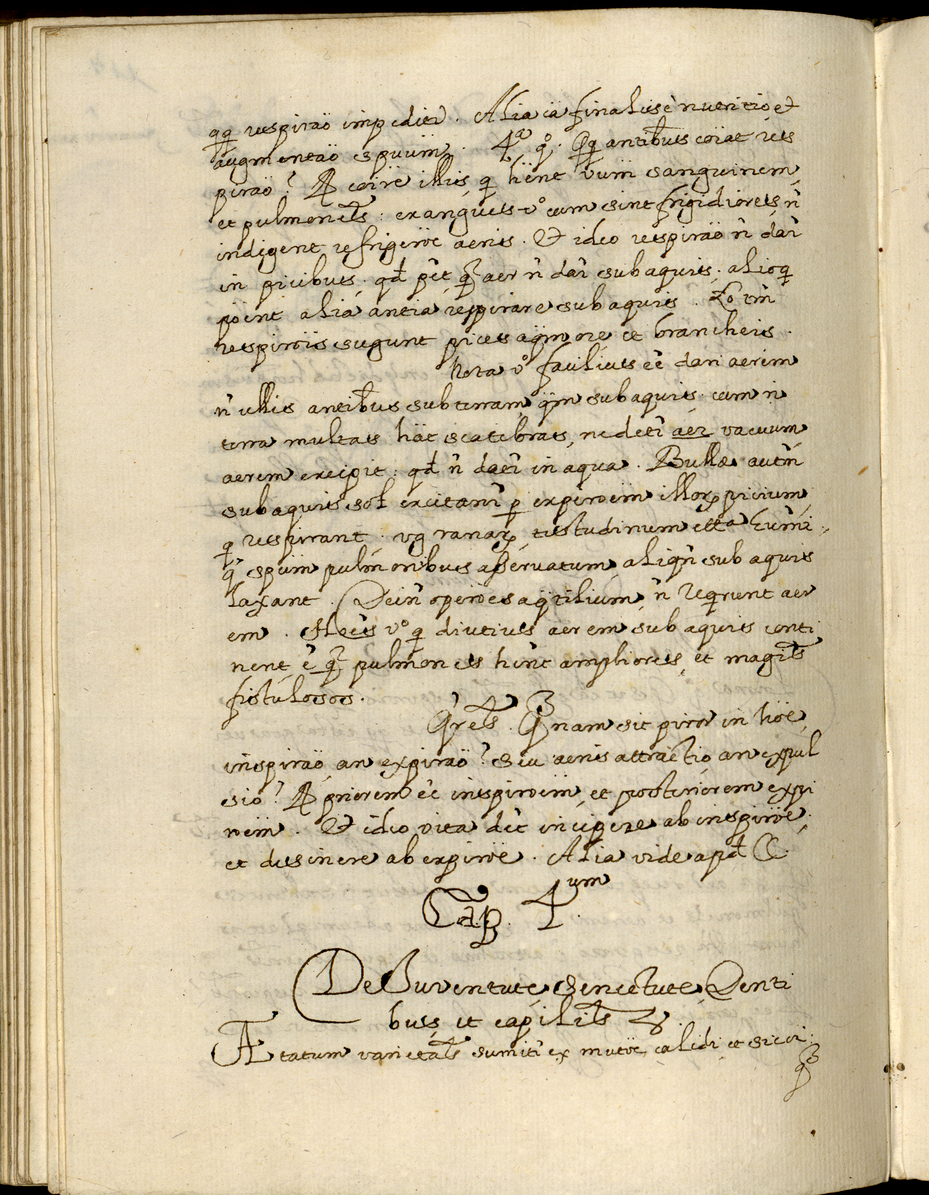 qq respiraõ impeditr. Alia cã finalis ẽ nutritio et
augmentaõ spuum. 4ª qº. Qq antibus coiat res
piraõ? R coire illis q hent rum sanguinem
et pulmones: exangues vº cum sint frigidiores ñ
indigent refrigeroe aeris. Et ideo respiraõ ñ dar
in picibus. qd pt q aer ñ dar sub aquis. alioq
point alia antia respirare sub aquis. Lo tm
respirois sugunt pices aqm ore et brancheis.
Nota vº facilius eẽ dari aerem
ñ ullis antibus sub terram qm sub aquis. cum ñ
terra multas hat scatebras, ne detr aer vacuum
aerem excipit: qd ñ datr in aqua. Bullæ autm
sub aquis sol excitanr p expiroem illor picium
q respirant. vg ranar, testudinum etta
q spum pulmonibus asservatum aliqn sub aquis
laxant. Dein operoes aqtilium ñ reqrunt aer
em. Heis vº q diutius aerem sub aquis conti
nent ẽ q pulmones hent ampliores, et magis
fistulosos.
Qres. Qnam sit prior in hoe
inspiraõ, an expiraõ? Seu aeris attractio, an expul
sio? R priorem eẽ inspiroem, et posteriorem expi
roem. Et ideo vita det incipere ab inspiroe,
et desinere ab expiroe. Alia vide apd C.
Cap. 4um.
De Iuventute, Senectute, Denti
bus, et capilis
Ætatum varietas sumitr ex mutoe calidi et sicci.